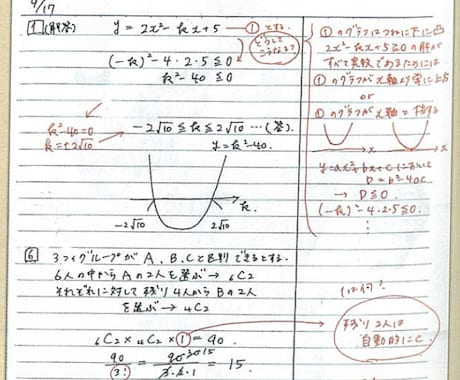 9/17
1 (解答)
y = 2x² - kx + 5 ― ① とする。
どうしてこうなる?
(-k)² - 4・2・5 ≦ 0
k² - 40 ≦ 0
k² - 40 = 0
k = ±2√10
-2√10 ≦ k ≦ 2√10 …(答)
y = k² - 40.
-2√10
2√10
k
①のグラフはつねに下に凸
2x² - kx + 5 ≧ 0 の解が
すべて実数であるためには
①のグラフがx軸より常に上
or
①のグラフがx軸と接する
x
x
y = ax² + bx + c において
D = b² - 4ac
→ D ≦ 0.
(-k)² - 4・2・5 ≦ 0.
⋮
6 3つのグループがA、B、Cと区別できるとする。
6人の中からAの2人を選ぶ → ₆C₂
それぞれに対して残り4人からBの2人
を選ぶ → ₄C₂
₆C₂ × ₄C₂ × ① = 90.
1は何?
残り2人は
自動的にC.
90/3! = 90 30 15/3・2・1 = 15.